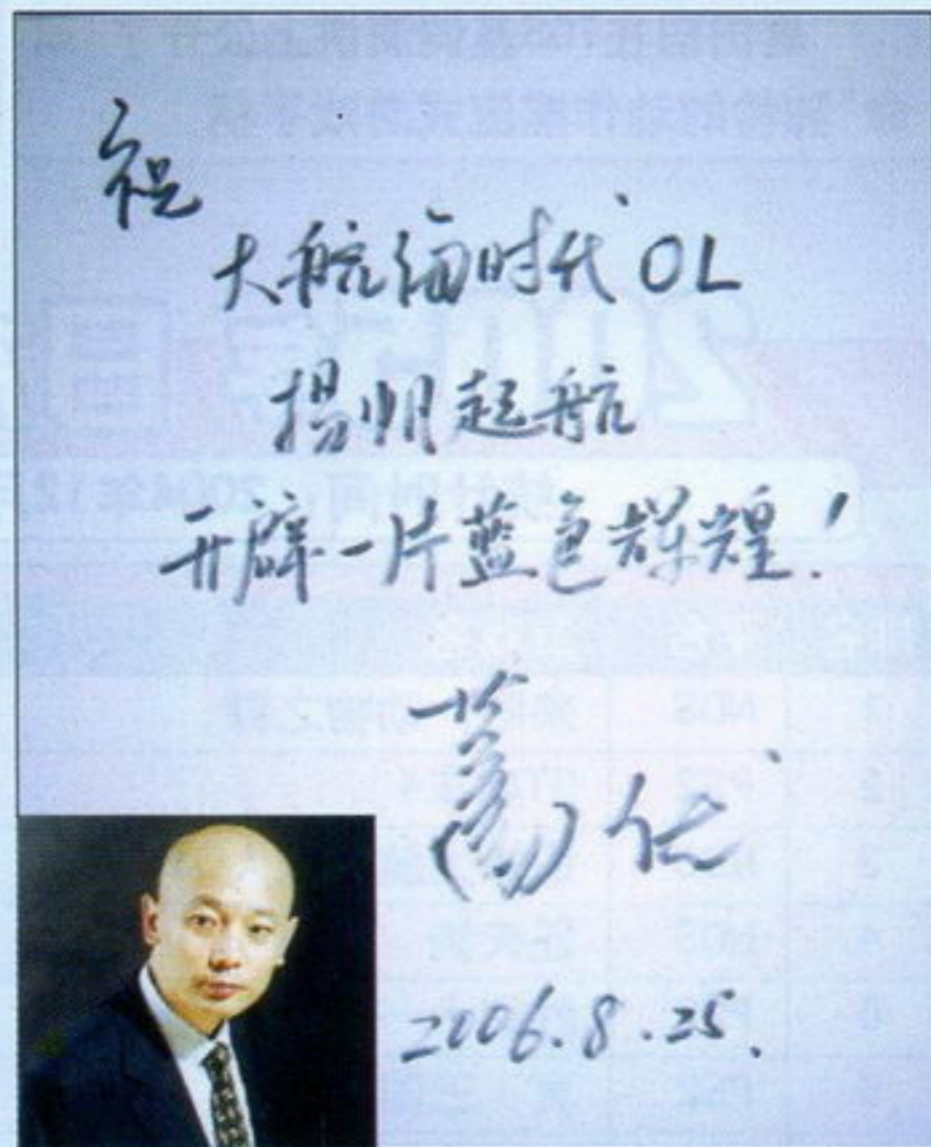 祝
大航海时代OL
扬帆起航
开辟一片蓝色辉煌!
葛优
2006.8.25.